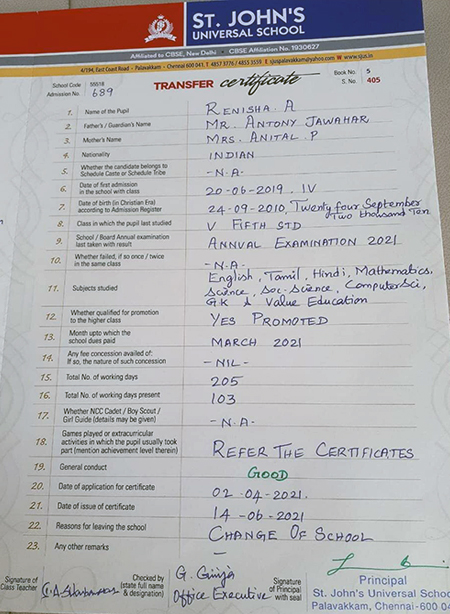 ST. JOHN'S
UNIVERSAL SCHOOL
Affiliated to CBSE, New Delhi • CBSE Affiliation No. 1930627
4/194, East Coast Road - Palavakkam - Chennai 600 041. T 4857 3776 / 4855 3559 E sjuspalavakkam@yahoo.com W www.sjus.in
School Code 55518
Admission No. 689
TRANSFER certificate
Book No. 5
S. No. 405
1. Name of the Pupil RENISHA. A
2. Father's / Guardian's Name MR. ANTONY JAWAHAR
3. Mother's Name MRS. ANITAL. P
4. Nationality INDIAN
5. Whether the candidate belongs to
Schedule Caste or Schedule Tribe - N.A -
6. Date of first admission
in the school with class 20-06-2019. IV
7. Date of birth (in Christian Era)
according to Admission Register 24-09-2010, Twenty four September
Two thousand Ten
8. Class in which the pupil last studied V FIFTH STD
9. School / Board Annual examination
last taken with result ANNUAL EXAMINATION 2021
10. Whether failed, if so once / twice
in the same class - N.A -
11. Subjects studied English, Tamil, Hindi, Mathematics,
Science, Soc-Science, Computer Sci,
G.K & Value Education
12. Whether qualified for promotion
to the higher class YES PROMOTED
13. Month upto which the
school dues paid MARCH 2021
14. Any fee concession availed of:
If so, the nature of such concession - NIL -
15. Total No. of working days 205
16. Total No. of working days present 103
17. Whether NCC Cadet / Boy Scout /
Girl Guide (details may be given) - N.A -
18. Games played or extracurricular
activities in which the pupil usually took
part (mention achievement level therein) REFER THE CERTIFICATES
19. General conduct GOOD
20. Date of application for certificate 02-04-2021.
21. Date of issue of certificate 14-06-2021
22. Reasons for leaving the school CHANGE OF SCHOOL
23. Any other remarks —
Signature of
Class Teacher
Checked by
(state full name
& designation)
G.
Office Executive
Signature
of Principal
with seal
Principal
St. John's Universal School
Palavakkam, Chennai-600 04